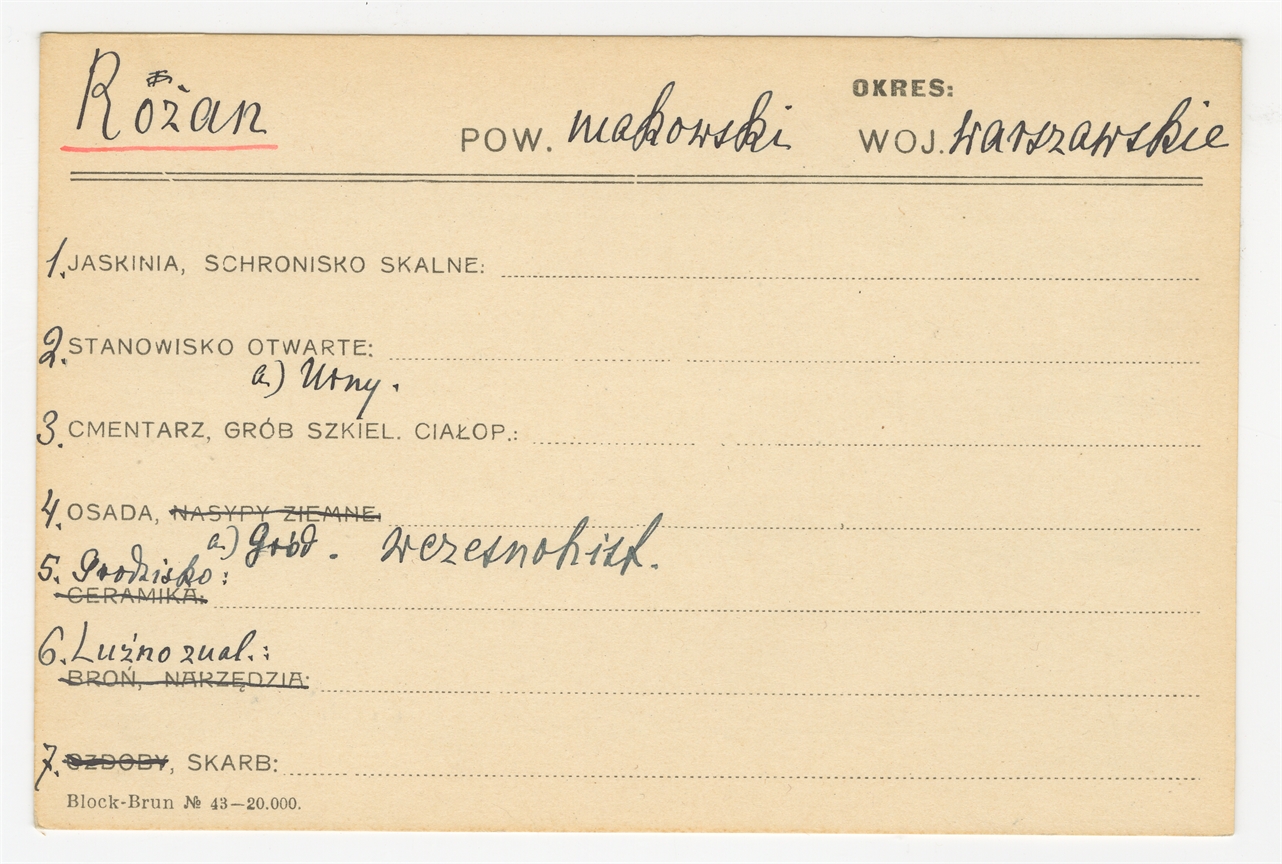 Różan
OKRES:
POW. makowski WOJ. warszawskie
1. JASKINIA, SCHRONISKO SKALNE:
2. STANOWISKO OTWARTE:
a.) Urny.
3. CMENTARZ, GRÓB SZKIEL. CIAŁOP.:
4. OSADA, NASYPY ZIEMNE:
a.) Gród. wczesnohist.
5. Grodzisko:
CERAMIKA:
6. Luźno znal.:
BROŃ, NARZĘDZIA:
7. OZDOBY, SKARB:
Block-Brun № 43—20.000.